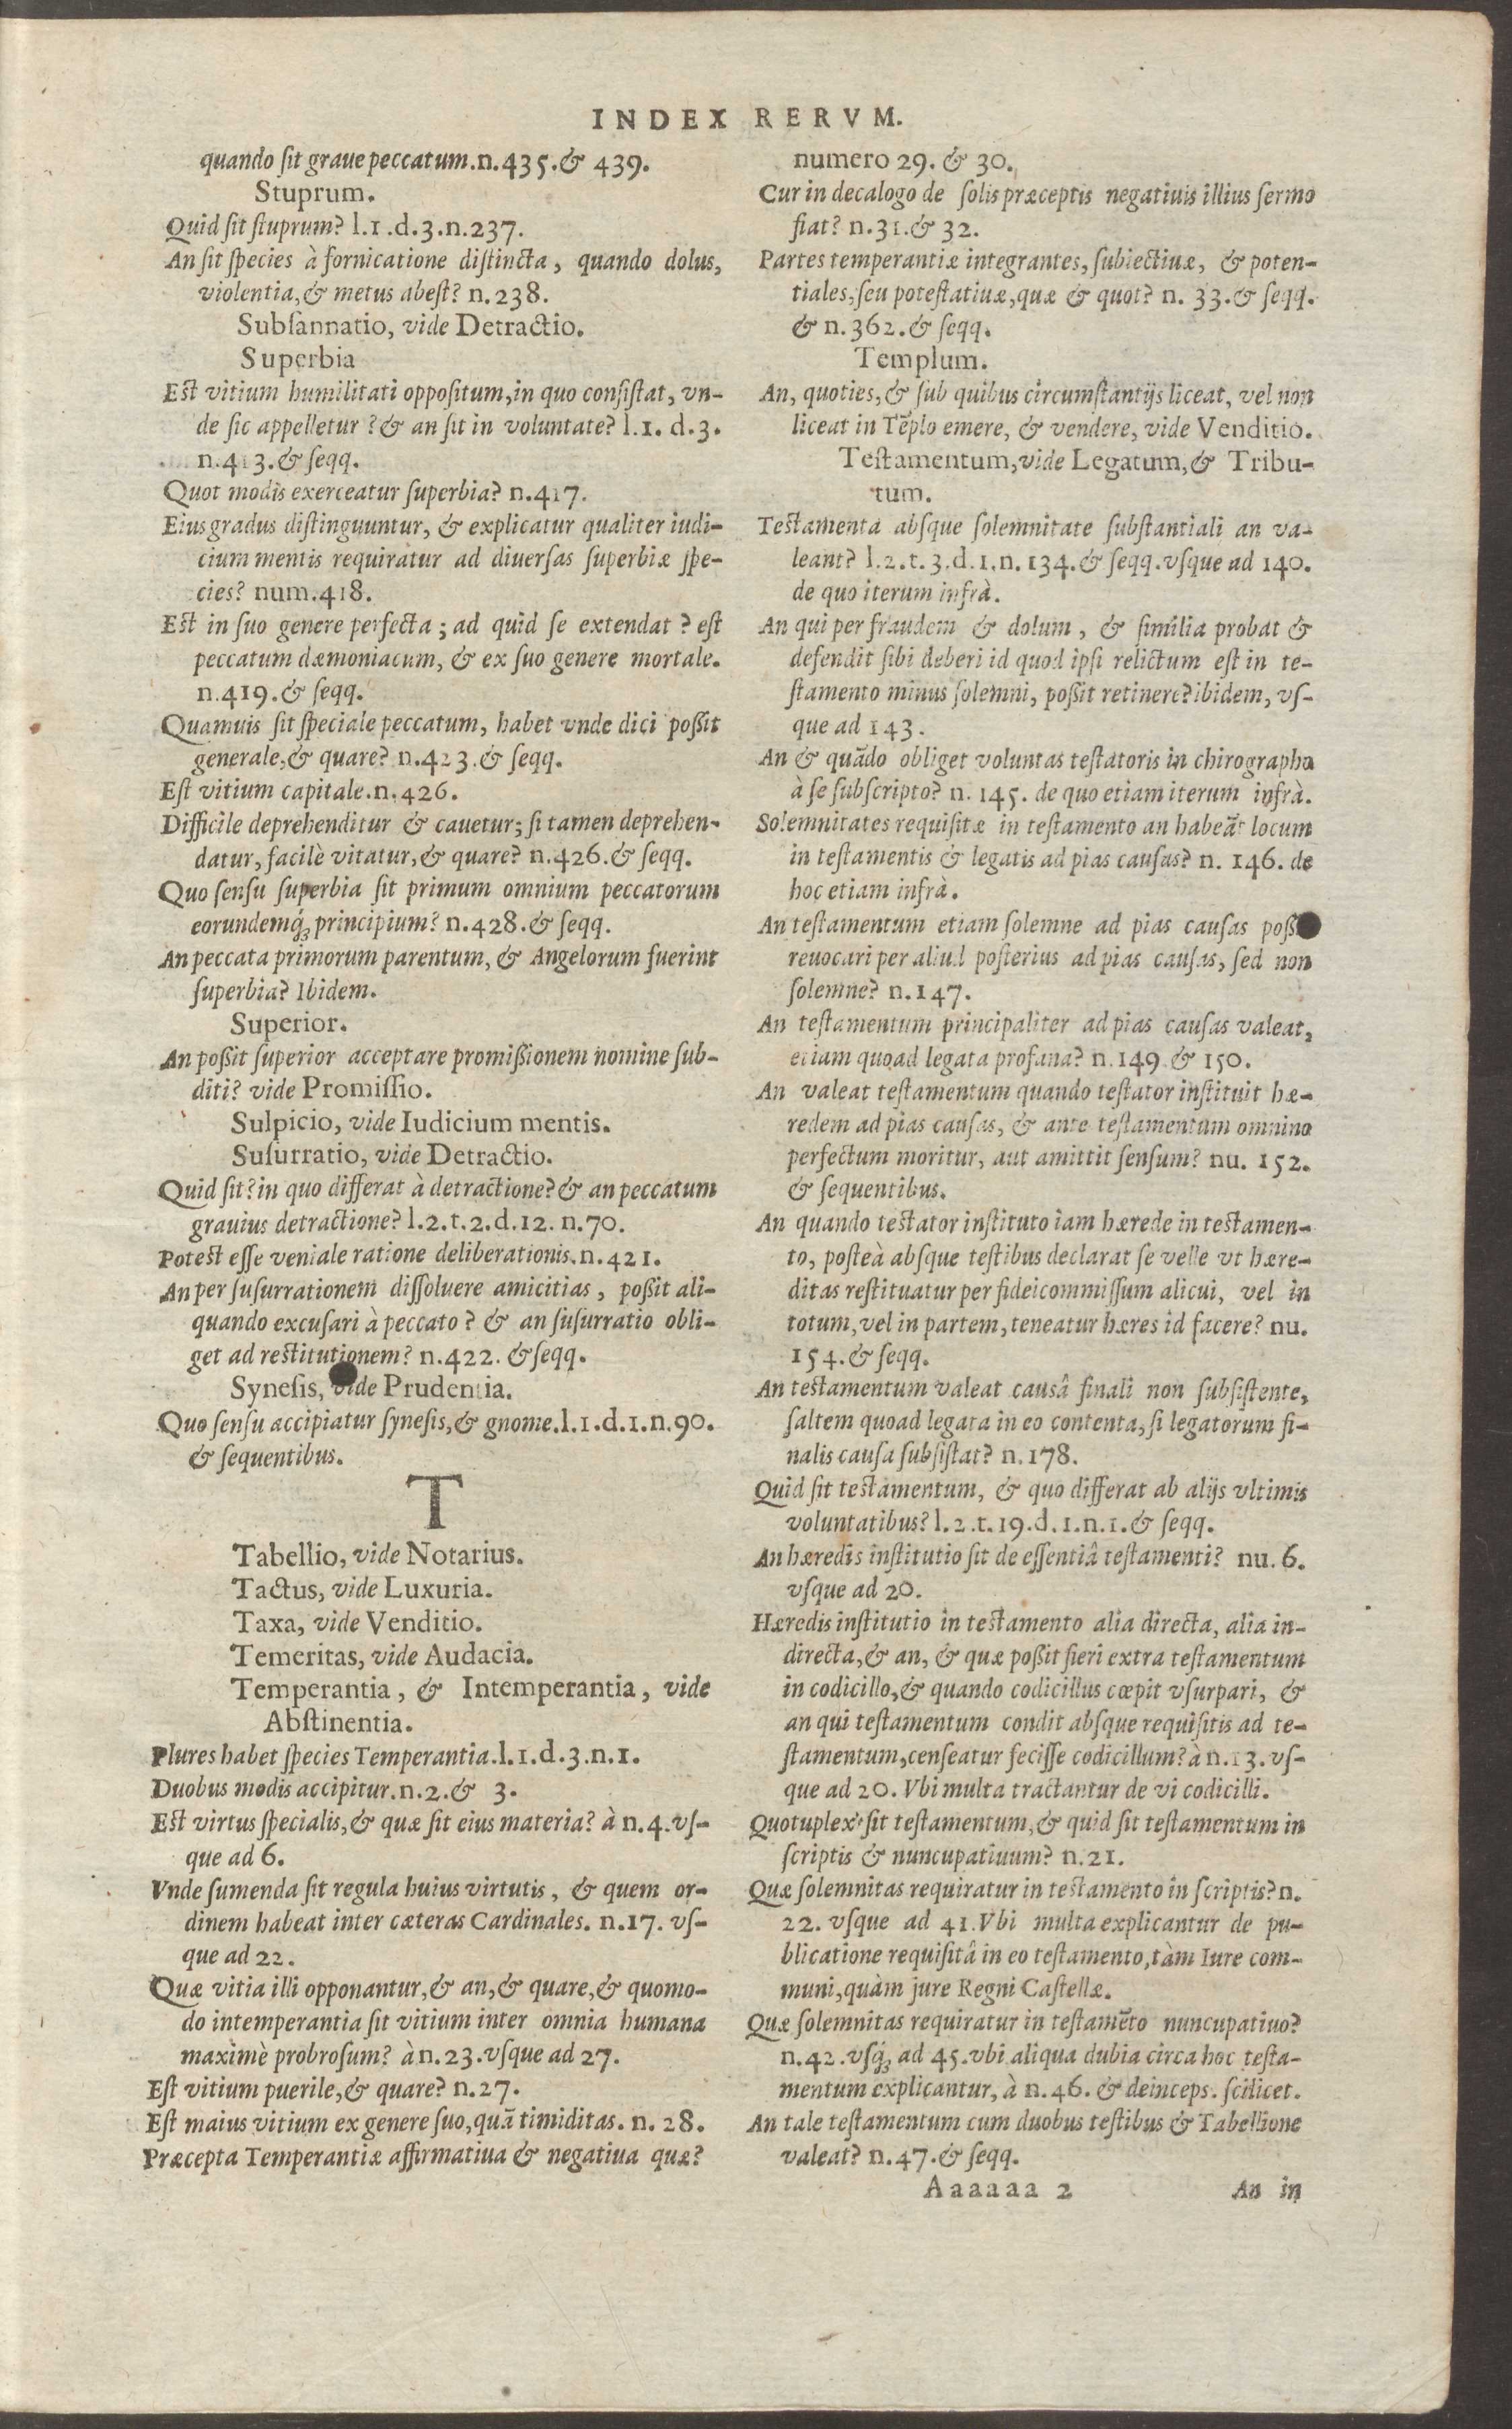 INDEX RERVM.
quando sit graue peccatum.n.435.& 439.
Stuprum.
Quid sit stuprum? l.1.d.3.n.237.
An sit species à fornicatione distincta, quando dolus,
violentia,& metus abest? n.238.
Subsannatio, vide Detractio.
Superbia
Est vitium humilitati oppositum,in quo consistat, vn-
de sic appelletur ?& an sit in voluntate? l.1. d.3.
n.413.& seqq.
Quot modis exerceatur superbia? n.417.
Eius gradus distinguuntur, & explicatur qualiter iudi-
cium mentis requiratur ad diuersas superbiæ spe-
cies? num.418.
Est in suo genere perfecta ; ad quid se extendat ? est
peccatum dæmoniacum, & ex suo genere mortale.
n.419.& seqq.
Quamuis sit speciale peccatum, habet vnde dici possit
generale,& quare? n.423.& seqq.
Est vitium capitale.n.426.
Difficile deprehenditur & cauetur; si tamen deprehen-
datur, facilè vitatur,& quare? n.426.& seqq.
Quo sensu superbia sit primum omnium peccatorum
eorundemq́; principium? n.428.& seqq.
An peccata primorum parentum, & Angelorum fuerint
superbia? Ibidem.
Superior.
An possit superior acceptare promissionem nomine sub-
diti? vide Promissio.
Sulpicio, vide Iudicium mentis.
Susurratio, vide Detractio.
Quid sit? in quo differat à detractione?& an peccatum
grauius detractione? l.2.t.2.d.12. n.70.
Potest esse veniale ratione deliberationis.n.421.
An per susurrationem dissoluere amicitias, possit ali-
quando excusari à peccato ? & an susurratio obli-
get ad restitutionem? n.422. & seqq.
Synesis, vide Prudentia.
Quo sensu accipiatur synesis,& gnome.l.1.d.1.n.90.
& sequentibus.
T
Tabellio, vide Notarius.
Tactus, vide Luxuria.
Taxa, vide Venditio.
Temeritas, vide Audacia.
Temperantia, & Intemperantia, vide
Abstinentia.
Plures habet species Temperantia.l.1.d.3.n.1.
Duobus modis accipitur.n.2.& 3.
Est virtus specialis,& quæ sit eius materia? à n.4.vs-
que ad 6.
Vnde sumenda sit regula huius virtutis, & quem or-
dinem habeat inter cæteras Cardinales. n.17. vs-
que ad 22.
Quæ vitia illi opponantur,& an,& quare,& quomo-
do intemperantia sit vitium inter omnia humana
maximè probrosum? à n.23.vsque ad 27.
Est vitium puerile,& quare? n.27.
Est maius vitium ex genere suo,quã timiditas. n.28.
Præcepta Temperantiæ affirmatiua & negatiua quæ?
numero 29. & 30.
Cur in decalogo de solis præceptis negatiuis illius sermo
fiat? n.31.& 32.
Partes temperantiæ integrantes, subiectiuæ, & poten-
tiales,seu potestatiuæ,quæ & quot? n. 33.& seqq.
& n.362.& seqq.
Templum.
An, quoties,& sub quibus circumstantijs liceat, vel non
liceat in Tẽplo emere, & vendere, vide Venditio.
Testamentum,vide Legatum,& Tribu-
tum.
Testamenta absque solemnitate substantiali an va-
leant? l.2.t.3.d.1.n.134.& seqq.vsque ad 140.
de quo iterum infrà.
An qui per fraudem & dolum, & similia probat &
defendit sibi deberi id quod ipsi relictum est in te-
stamento minus solemni, possit retinere? ibidem, vs-
que ad 143.
An & quãdo obliget voluntas testatoris in chirographo
à se subscripto? n. 145. de quo etiam iterum infrà.
Solemnitates requisitæ in testamento an habeãt locum
in testamentis & legatis ad pias causas? n. 146. de
hoc etiam infrà.
An testamentum etiam solemne ad pias causas
reuocari per aliud posterius ad pias causas, sed non
solemne? n.147.
An testamentum principaliter ad pias causas valeat,
etiam quoad legata profana? n.149 & 150.
An valeat testamentum quando testator instituit hæ-
redem ad pias causas, & ante testamentum omnino
perfectum moritur, aut amittit sensum? nu. 152.
& sequentibus.
An quando testator instituto iam hærede in testamen-
to, posteà absque testibus declarat se velle vt hære-
ditas restituatur per fideicommissum alicui, vel in
totum,vel in partem, teneatur hæres id facere? nu.
154.& seqq.
An testamentum valeat causâ finali non subsistente,
saltem quoad legata in eo contenta,si legatorum fi-
nalis causa subsistat? n.178.
Quid sit testamentum, & quo differat ab alijs vltimis
voluntatibus? l.2.t.19.d.1.n.1.& seqq.
An hæredis institutio sit de essentiâ testamenti? nu.6.
vsque ad 20.
Hæredis institutio in testamento alia directa, alia in-
directa,& an, & quæ possit fieri extra testamentum
in codicillo,& quando codicillus cœpit vsurpari, &
an qui testamentum condit absque requisitis ad te-
stamentum,censeatur fecisse codicillum? à n.13.vs-
que ad 20. Vbi multa tractantur de vi codicilli.
Quotuplex sit testamentum,& quid sit testamentum in
scriptis & nuncupatiuum? n.21.
Quæ solemnitas requiratur in testamento in scriptis? n.
22. vsque ad 41.Vbi multa explicantur de pu-
blicatione requisitâ in eo testamento,tàm Iure com-
muni,quàm jure Regni Castellæ.
Quæ solemnitas requiratur in testamẽto nuncupatiuo?
n.42.vsq́; ad 45.vbi aliqua dubia circa hoc testa-
mentum explicantur, à n.46. & deinceps. scilicet.
An tale testamentum cum duobus testibus & Tabellione
valeat? n.47.& seqq.
Aaaaaa 2 An in